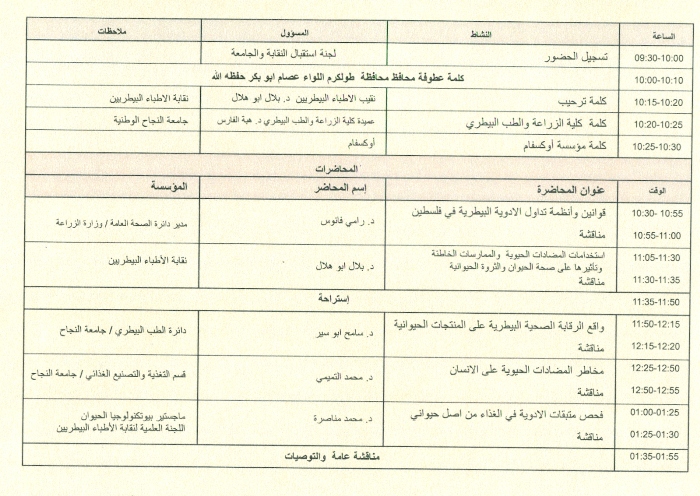 الساعة النشاط المسؤول ملاحظات
09:30-10:00 تسجيل الحضور لجنة استقبال النقابة والجامعة
10:00-10:10 كلمة عطوفة محافظ محافظة طولكرم اللواء عصام ابو بكر حفظه الله
10:15-10:20 كلمة ترحيب نقيب الاطباء البيطريين د. بلال ابو هلال نقابة الاطباء البيطريين
10:20-10:25 كلمة كلية الزراعة والطب البيطري عميدة كلية الزراعة والطب البيطري د. هبة الفارس جامعة النجاح الوطنية
10:25-10:30 كلمة مؤسسة أوكسفام أوكسفام
المحاضرات
الوقت عنوان المحاضرة إسم المحاضر المؤسسة
10:30- 10:55 قوانين وأنظمة تداول الادوية البيطرية في فلسطين
د. رامي فانوس مدير دائرة الصحة العامة / وزارة الزراعة
10:55-11:00 مناقشة
11:05-11:30 استخدامات المضادات الحيوية والممارسات الخاطئة
وتأثيرها على صحة الحيوان والثروة الحيوانية
د. بلال ابو هلال نقابة الأطباء البيطريين
11:30-11:35 مناقشة
11:35-11:50 إستراحة
11:50-12:15 واقع الرقابة الصحية البيطرية على المنتجات الحيوانية
د. سامح ابو سير دائرة الطب البيطري / جامعة النجاح
12:15-12:20 مناقشة
12:25-12:50 مخاطر المضادات الحيوية على الانسان
د. محمد التميمي قسم التغذية والتصنيع الغذائي / جامعة النجاح
12:50-12:55 مناقشة
01:00-01:25 فحص متبقات الادوية في الغذاء من اصل حيواني
د. محمد مناصرة ماجستير بيوتكنولوجيا الحيوان
اللجنة العلمية لنقابة الأطباء البيطريين
01:25-01:30 مناقشة
01:35-01:55 مناقشة عامة والتوصيات